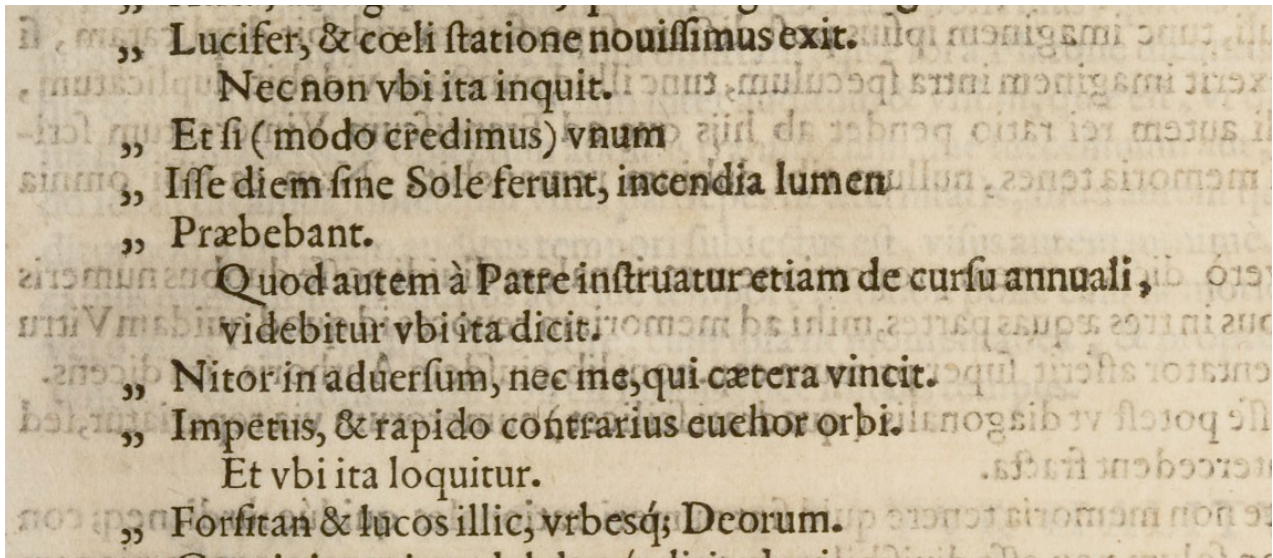 „ Lucifer, & cœli ſtatione nouiſſimus exit.
Nec non vbi ita inquit.
„ Et ſi (modo credimus) vnum
„ Iſſe diem ſine Sole ferunt, incendia lumen
„ Præbebant.
Quod autem à Patre inſtruatur etiam de curſu annuali,
videbitur vbi ita dicit.
„ Nitor in aduerſum, nec me, qui cætera vincit.
„ Impetus, & rapido cóntrarius euehor orbi.
Et vbi ita loquitur.
„ Forſitan & lucos illic, vrbesq́; Deorum.